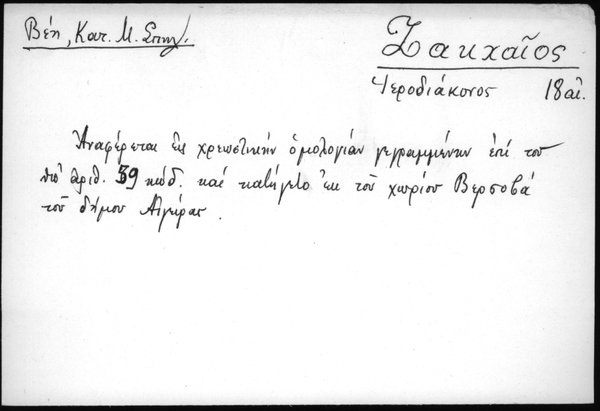 Βέη, Κατ. Μ. Σπηλ.
Ζακχαῖος
Ἱεροδιάκονος 18 αἰ.
Ἀναφέρεται εἰς χρεωστικὴν ὁμολογίαν γεγραμμένην ἐπὶ τοῦ
ὑπ' ἀριθ. 39 κώδ. καὶ κατήγετο ἐκ τοῦ χωρίου Βερσοβᾶ
τοῦ δήμου Αἰγείρας.